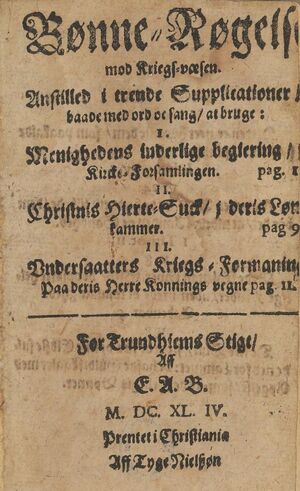 Bønne-Røgelse
mod Kriegs-væsen.
Anstilled i trende Supplicationer /
baade med ord oc sang / at bruge:
I.
Menighedens inderlige begiering /
Kircke-Forsamlingen. pag. 1
II.
Christnis Hierte-Suck / i deris Løn
kammer. pag 9
III.
Vndersaatters Kriegs-Formaning
Paa deris Herre Konnings vegne pag. 11.
For Trundhiems Stigt /
Aff
E. A. B.
M. DC. XL. IV.
Prentet i Christiania
Aff Tyge Nielßøn